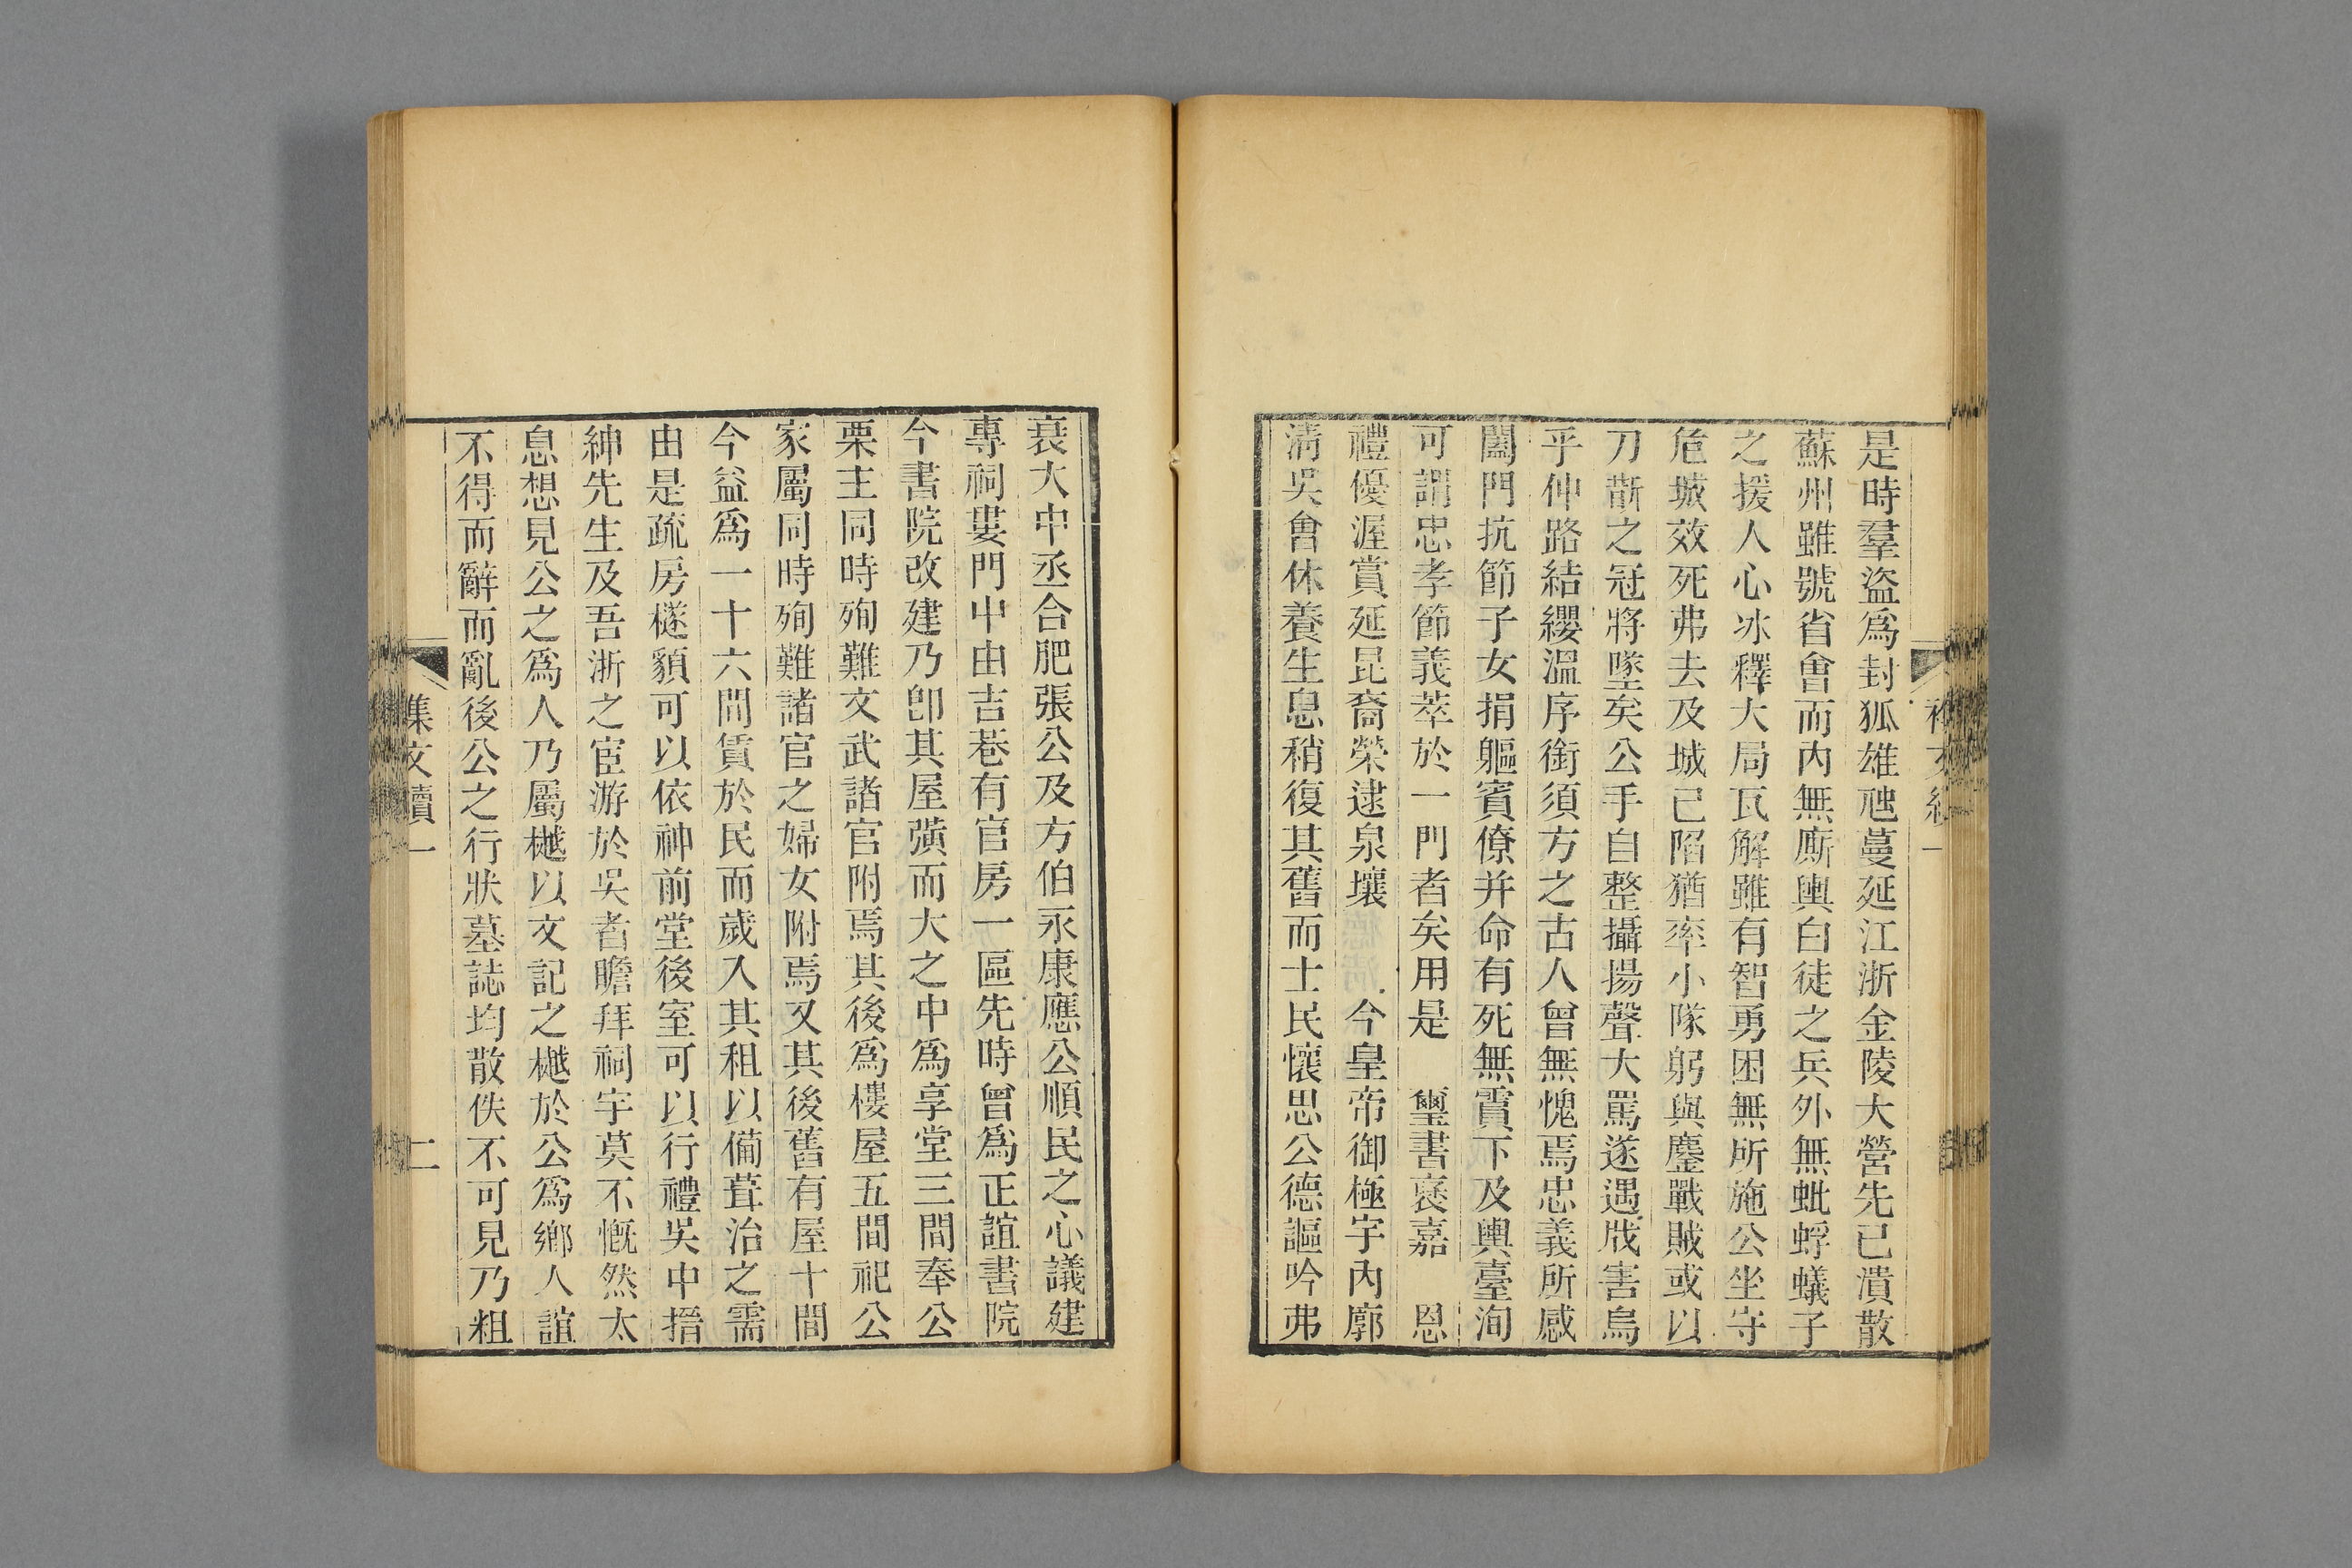 是時羣盜爲封狐雄虺蔓延江浙金陵大營先已潰散
蘇州雖號省會而內無廝輿白徒之兵外無蚍蜉蟻子
之援人心冰釋大局瓦解雖有智勇困無所施公坐守
危城效死弗去及城已陷猶率小隊躬與鏖戰賊或以
刀斮之冠將墜矣公手自整攝揚聲大罵遂遇戕害烏
乎仲路結纓溫序銜須方之古人曾無愧焉忠義所感
闔門抗節子女捐軀賓僚并命有死無霣下及輿臺洵
可謂忠孝節義萃於一門者矣用是 璽書褒嘉 恩
禮優渥賞延昆裔榮逮泉壤 今皇帝御極宇內廓
清吳會休養生息稍復其舊而士民懷思公德謳吟弗
衰大中丞合肥張公及方伯永康應公順民之心議建
專祠婁門中由吉巷有官房一區先時曾爲正誼書院
今書院改建乃卽其屋彉而大之中爲享堂三間奉公
栗主同時殉難文武諸官附焉其後爲樓屋五間祀公
家屬同時殉難諸官之婦女附焉又其後舊有屋十間
今益爲一十六間賃於民而歲入其租以備葺治之需
由是疏房檖䫉可以依神前堂後室可以行禮吳中搢
紳先生及吾浙之宦游於吳者瞻拜祠宇莫不慨然太
息想見公之爲人乃屬樾以文記之樾於公爲鄉人誼
不得而辭而亂後公之行狀墓誌均散佚不可見乃粗
集文續一
二